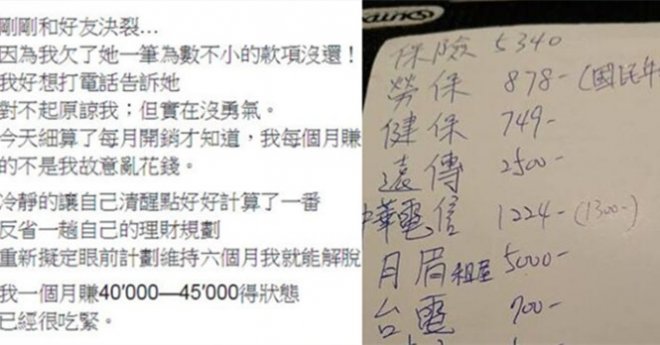 剛剛和好友決裂...
因為我欠了她一筆為數不小的款項沒還！
我好想打電話告訴她
對不起原諒我；但實在沒勇氣。
今天細算了每月開銷才知道，我每個月賺
的不是我故意亂花錢。
冷靜的讓自己清醒點好好計算了一番
反省一趟自己的理財規劃
重新擬定眼前計劃維持六個月我就能解脫
我一個月賺40'000—45'000得狀態
已經很吃緊。
保險 5340
勞保 878-(國民年
健保 749-
遠傳 2500-
中華電信 1224-(1300-)
月眉租屋 5000-
台電 700-